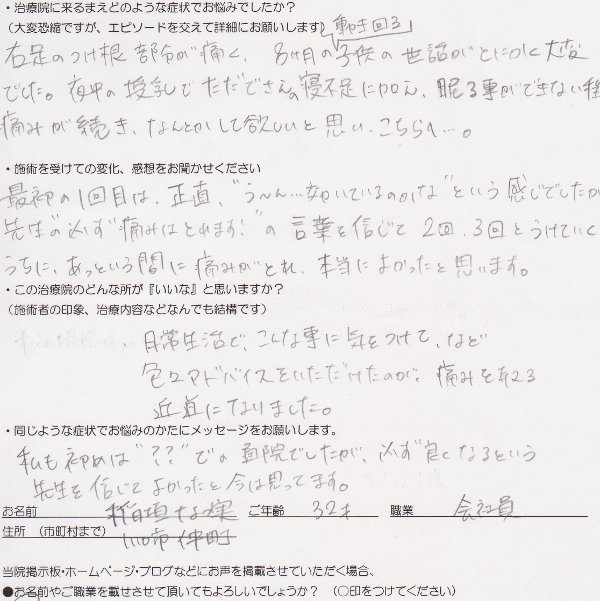 ・治療院に来るまえどのような症状でお悩みでしたか?
(大変恐縮ですが、エピソードを交えて詳細にお願いします)
動き回る
右足のつけ根部分が痛く、8ヶ月の子供の世話がとにかく大変
でした。夜中の授乳でただでさえの寝不足に加え、眠る事ができない程
痛みが続き、なんとかして欲しいと思い、こちらへ…。
・施術を受けての変化、感想をお聞かせください
最初の1回目は、正直、"う〜ん…効いているのかな"という感じでしたが
先生"必ず痛みはとれます!"の言葉を信じて2回、3回とうけていく
うちに、あっという間に痛みがとれ、本当によかったと思います。
・この治療院のどんな所が『いいな』と思いますか?
(施術者の印象、治療内容などなんでも結構です)
日常生活で、こんな事に気をつけて、など
色々アドバイスをいただけたのが、痛みを和える
近道になりました。
・同じような症状でお悩みのかたにメッセージをお願いします。
私も初めは"??"での通院でしたが、必ず良くなるという
先生を信じてよかったと今は思ってます。
お名前 稲垣 ご年齢 32才 職業 会社員
住所 (市町村まで) 市仲町
当院掲示板・ホームページ・ブログなどにお声を掲載させていただく場合、
●お名前やご職業を載せさせて頂いてもよろしいでしょうか? (○印をつけてください)